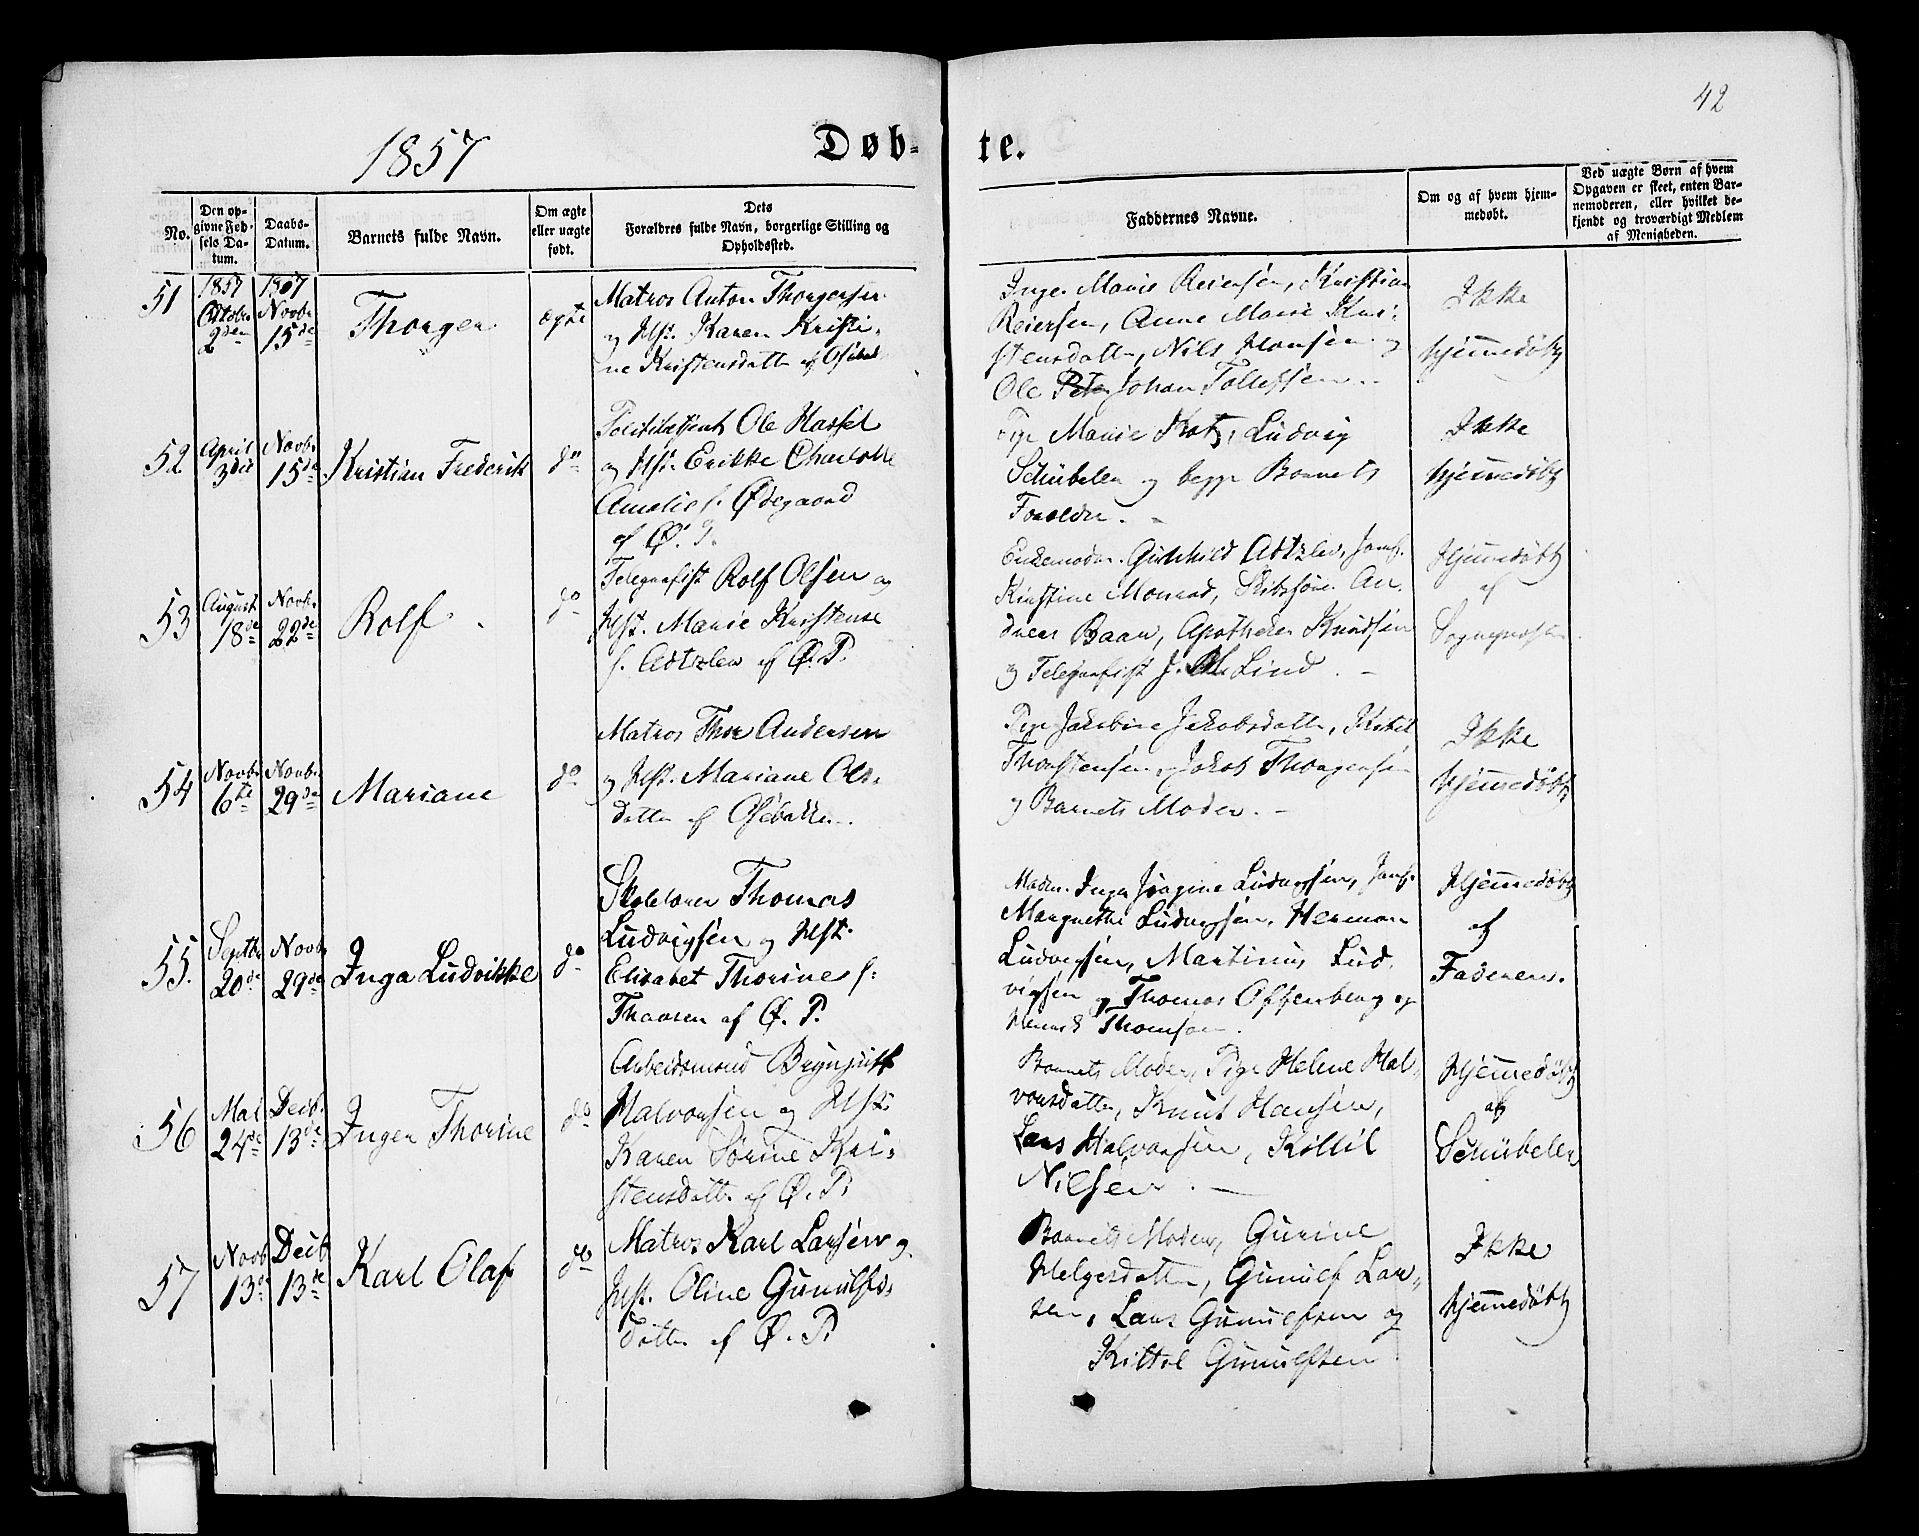 42
1857
Døb-
te.
No.
Den op-
givne Fød-
sels Da-
tum.
Daabs-
Datum.
Barnets fulde Navn.
Om ægte
eller uægte
født.
Dets
Forældres fulde Navn, borgerlige Stilling og
Opholdssted.
Faddernes Navne.
Om og af hvem hjem-
medøbt.
Ved uægte Børn af hvem
Opgaven er skeet, enten Bar-
nemoderen, eller hvilket be-
kjendt og troværdigt Medlem
af Menigheden.
51
1857
Octobr
2den
1857
Novbr
15de
Thorger
ægte
Matros Anton Thorgersen
og Hst. Karen Kristi-
ne Kristensdatter af
Inger Marie Reiersen, Kristian
Reiersen, Anne Marie Kri-
stensdatter, Nils Hansen og
Ole Johan Tollefsen.
Ikke
hjemmedøbt
52
April
3die
Novbr
15de
Kristian Frederik
do
Politibetjent Ole Hassel
og Hst. Erikke Charlotte
Amalie f. Ødegaard
af Ø. P.
Pige Marie Kotz, Ludvig
Schübeler og begge Barnets
Forældre.
Ikke
hjemmedøbt
53
August
18de
Novbr.
22de
Rolf.
do
Telegrafist Rolf Olsen og
Hst. Marie Kristense
f. Adtzlev af Ø. P.
Enkemadm. Gunhild Adtzlev, Jomf.
Kirstine Monrad, Skibsfører An-
dreas Baan, Apotheker Knudsen
og Telegrafist J. Lind.
Hjemmedøbt
af
Sognepræsten
54
Novbr
6te
Novbr
29de
Mariane
do
Matros Thor Andersen
og Hst. Mariane Ols-
datter af Osebakken.
Pige Jakobine Jakobsdatter, Kittil
Thorstensen, Jakob Thorgersen
og Barnets Moder.
Ikke
hjemmedøbt
55.
Septbr
20de
Novbr
29de
Inga Ludvikke
do
Skolelærer Thomas
Ludvigsen og Hst.
Elisabet Thorine f.
Thorsen af Ø. P.
Madm. Inga Jragine Ludvigsen, Jomf.
Margrethe Ludvigsen, Herman
Ludvigsen, Martinus Lud-
vigsen og Thomas Offenberg og
Henrik Thomsen.
Hjemmedøbt
af
Faderen.
56
Mai
24de
Decb.
13de
Inger Thorine
do
Arbeidsmand Brynjulf
Halvorsen og Hst.
Karen Sørine Kri-
stensdatter af Ø. P.
Barnets Moder, Pige Helene Hal-
vorsdatter, Knut Hansen,
Lars Halvorsen, Kittil
Nilsen.
Hjemmedøbt
af
Schübeler
57
Novb
13de
Decb
13de
Karl Olaf
do
Matros Karl Larsen og
Hst. Oline Gunulfs-
datter af Ø. P.
Barnets Moder, Gurine
Helgesdatter, Gunulf Lar-
sen, Lars Gunulfsen og
Kittel Gunulfsen.
Ikke
hjemmedøbt